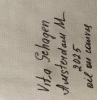 Vita Schagen
Amsterdam M
2025
oil on canvas